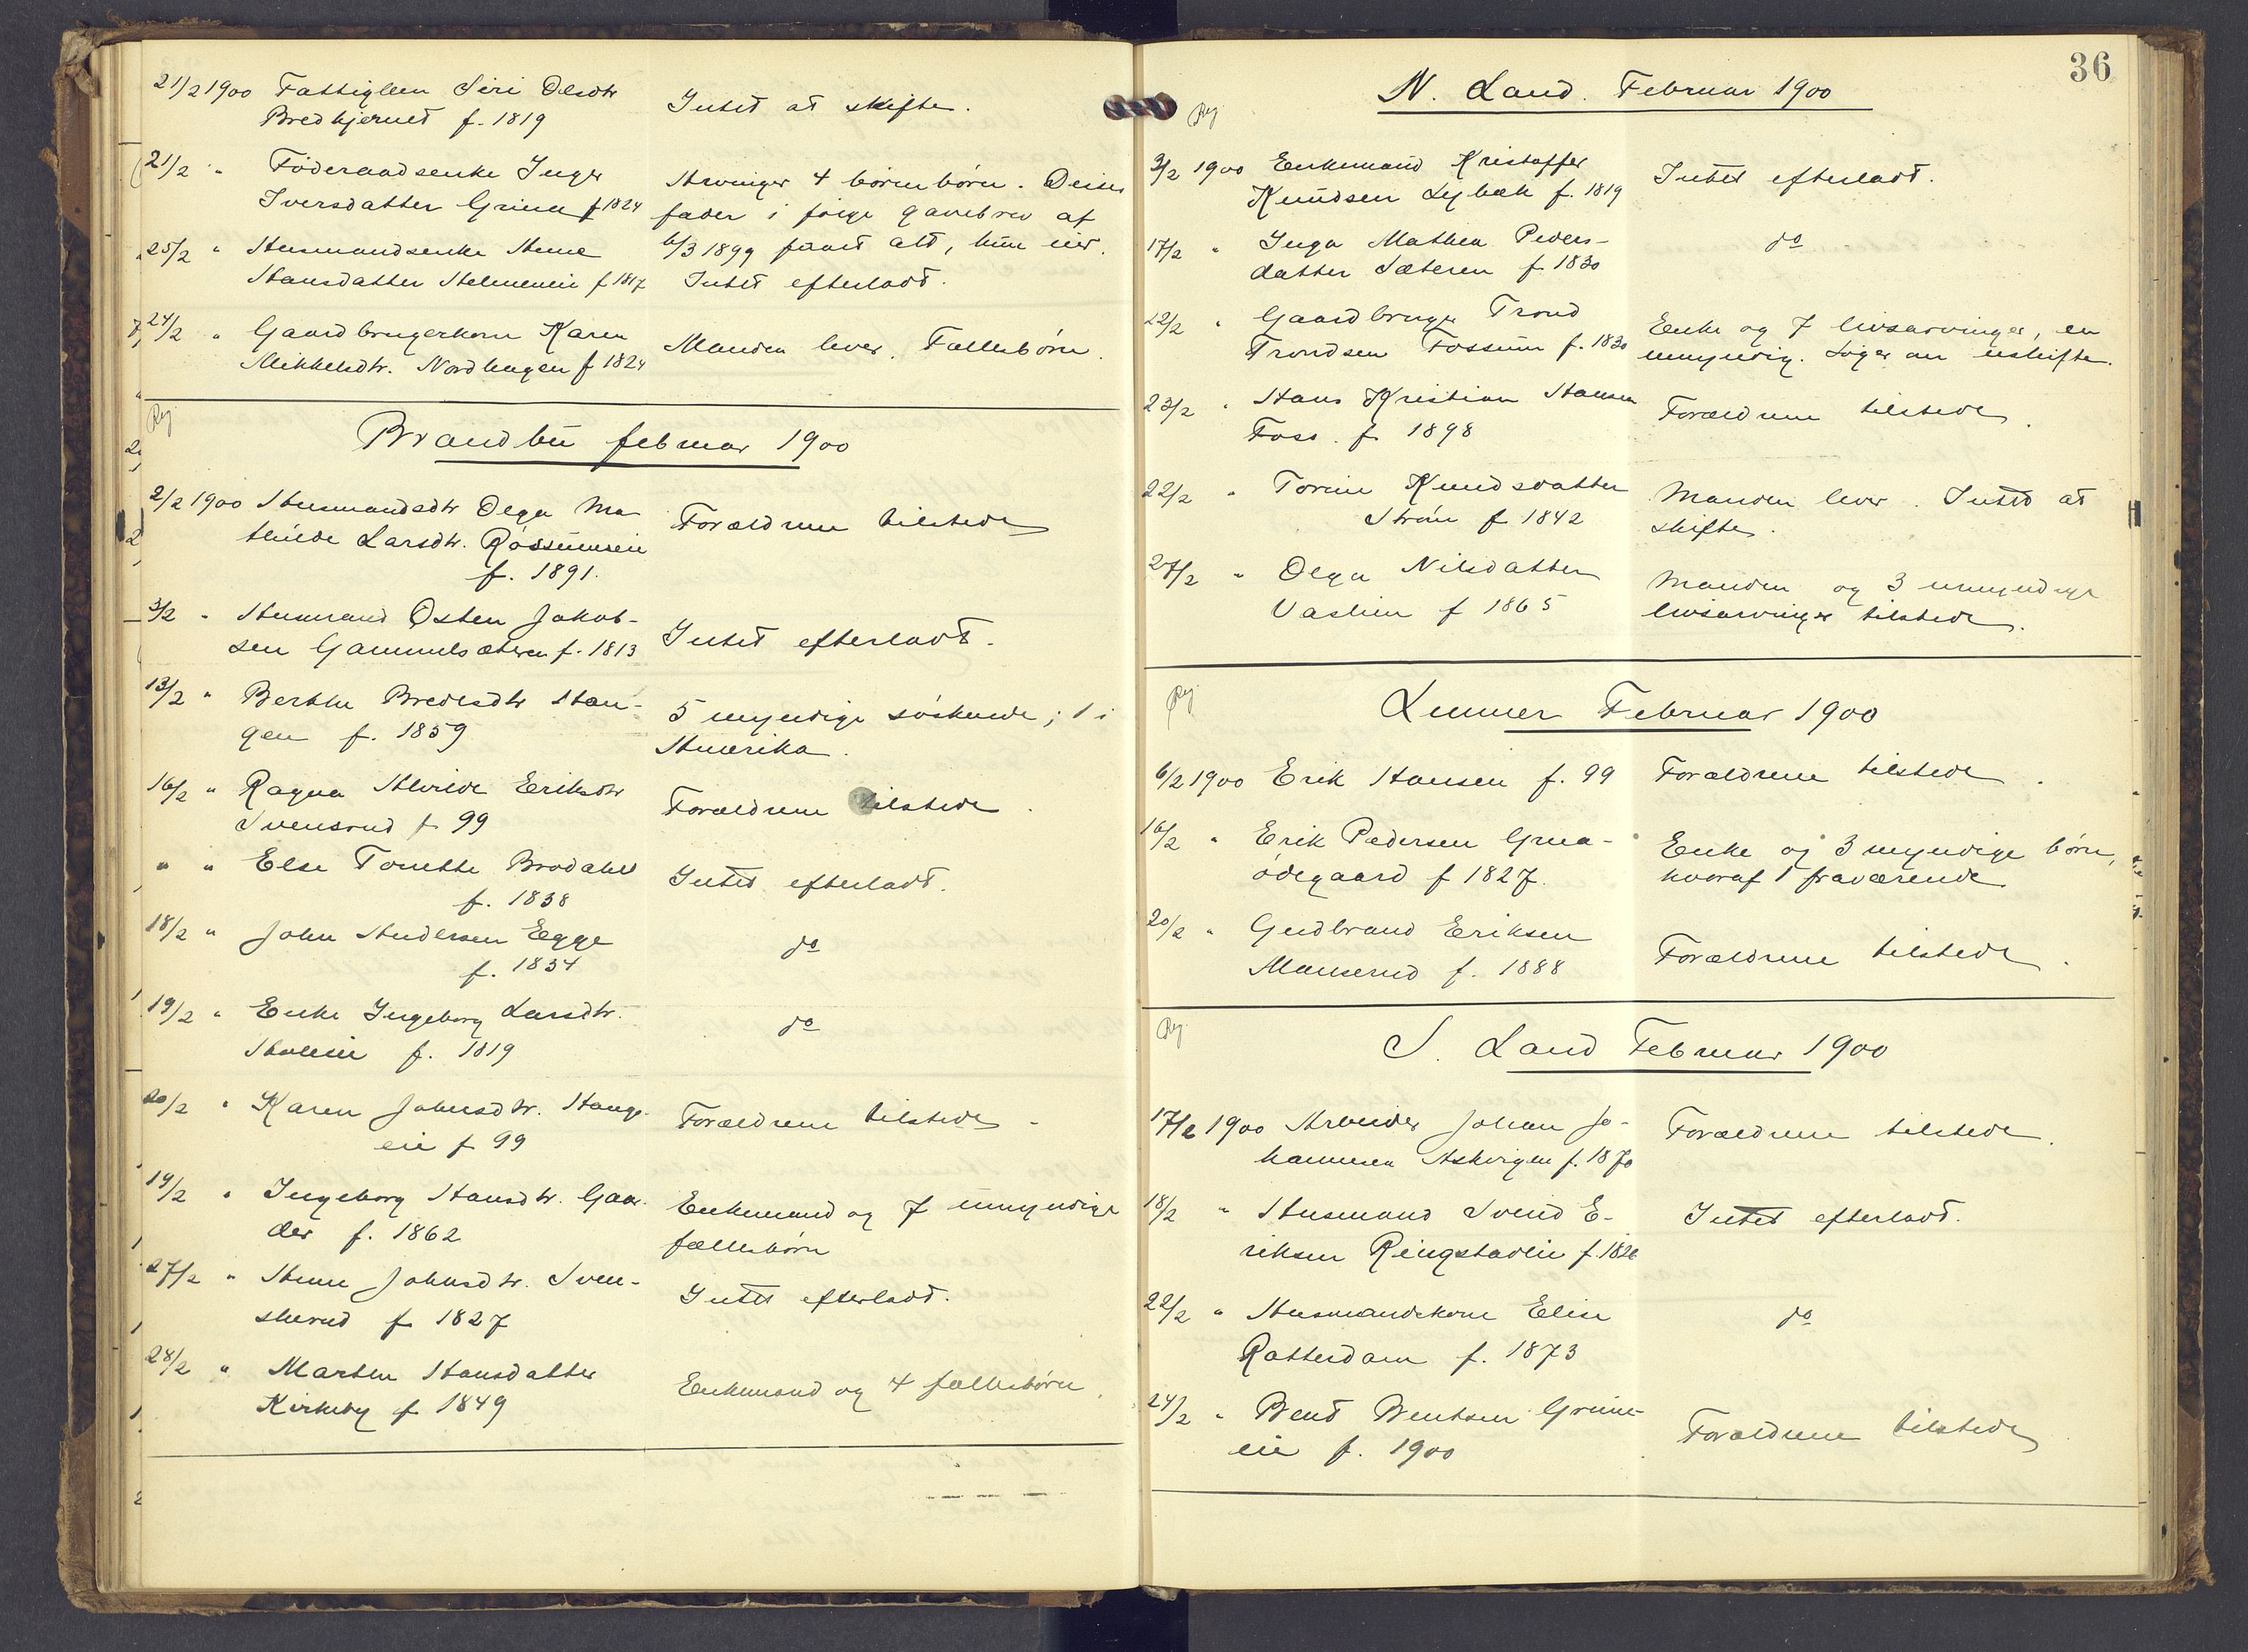 21/2 1900 Fattiglem Siri Olsdtr
Bredkjernet f. 1819
Intet at skifte.
21/2 " Föderaadsenke Inger
Iversdatter Grina f 1824
Arvinger 4 börnebörn. Deres
fader i fölge gavebrev af
6/3 1899 faaet alt, hun eier.
25/2 " Husmandsenke Anne
Hansdatter Helmeneie f 1817
Intet efterladt.
24/2 " Gaardbrugerkone Karen
Mikkelsdtr. Nordhagen f 1824
Manden lever. Fællesbörn.
Reg.
Brandbu februar 1900
2/2 1900 Husmandsdtr Olga Ma
thilde Larsdtr. Røssumseie
f. 1891.
Forældrene tilstede
3/2 " Husmand Østen Jakob-
sen Gammelsæteren f. 1813
Intet efterladt.
13/2 " Berthe Bredesdtr Han-
gen f. 1859
5 myndige söskende; 1 i
Amerika.
16/2 " Ragna Alvilde Eriksdtr
Svensrud f 99
Forældrene tilstede.
" " Else Tonette Brodahl
f. 1838
Intet efterladt.
18/2 " John Andersen Egge
f. 1834
do
19/2 " Enke Ingeborg Larsdtr.
f. 1819
do
20/2 " Karen Johnsdtr. Haugs-
eie f 99
Forældrene tilstede.
19/2 " Ingeborg Hansdtr. Gaar-
der f. 1862
Enkemand og 7 umyndige
fællesbörn
27/2 " Anne Johnsdtr. Sven-
skerud f 1827
Intet efterladt.
28/2 " Marthe Hansdatter
Kirkeby f 1849
Enkemand og 4 fællesbörn.
36
N. Land. Februar 1900
Reg
3/2 1900 Enkemand Kristoffer
Knudsen Lybæk f. 1819
Intet efterladt.
17/2 " Inga Mathea Peders-
datter Sæteren f 1830
do
22/2 " Gaardbruger Trond
Trondsen Fossum f. 1830
Enke og 7 livsarvinger, en
umyndig. Söger om uskifte.
23/2 " Hans Kristian Hansen
Foss. f 1898
Forældrene tilstede.
22/2 " Torine Knudsdatter
Ström f 1842
Manden lever. Intet at
skifte.
27/2 " Olga Nilsdatter
Vaslien f 1865
Manden og 3 umyndige
livsarvinger tilstede.
Reg.
Lunner Februar 1900
6/2 1900 Erik Hansen f. 99
Forældrene tilstede.
16/2 " Erik Pedersen Grua-
ödegaard f 1827.
Enke og 3 myndige börn,
hvoraf 1 fraværende
20/2 " Gudbrand Eriksen
Manserud f. 1888
Forældrene tilstede.
Reg.
S. Land Februar 1900
17/2 1900 Arbeider Johan Jo-
hannesen Askvigen f. 1870
Forældrene tilstede.
18/2 " Husmand Svend E-
riksen Ringstadeie f. 1826
Intet efterladt.
22/2 " Husmandskone Elise
Rotterdam f. 1873
do
24/2 " Bent Bentsen Grime-
eie f. 1900
Forældrene tilstede